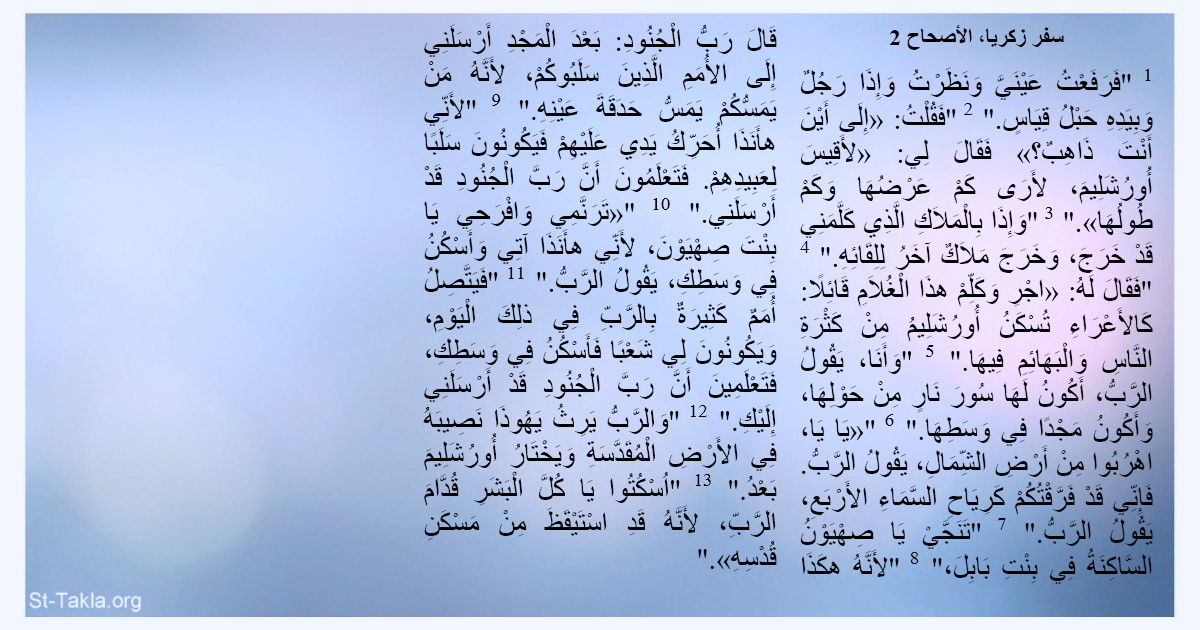 سفر زكريا، الأصحاح 2
1 "فَرَفَعْتُ عَيْنَيَّ وَنَظَرْتُ وَإِذَا رَجُلٌ
وَبِيَدِهِ حَبْلُ قِيَاسٍ." 2 "فَقُلْتُ: «إِلَى أَيْنَ
أَنْتَ ذَاهِبٌ؟» فَقَالَ لِي: «لأَقِيسَ
أُورُشَلِيمَ، لأَرَى كَمْ عَرْضُهَا وَكَمْ
طُولُهَا»." 3 "وَإِذَا بِالْمَلاَكِ الَّذِي كَلَّمَنِي
قَدْ خَرَجَ، وَخَرَجَ مَلاَكٌ آخَرُ لِلِقَائِهِ." 4
"فَقَالَ لَهُ: «اجْرِ وَكَلِّمْ هذَا الْغُلاَمِ قَائِلًا:
كَالأَعْرَاءِ تُسْكَنُ أُورُشَلِيمُ مِنْ كَثْرَةِ
النَّاسِ وَالْبَهَائِمِ فِيهَا." 5 "وَأَنَا، يَقُولُ
الرَّبُّ، أَكُونُ لَهَا سُورَ نَارٍ مِنْ حَوْلِهَا،
وَأَكُونُ مَجْدًا فِي وَسَطِهَا." 6 "«يَا يَا،
اهْرُبُوا مِنْ أَرْضِ الشِّمَالِ، يَقُولُ الرَّبُّ.
فَإِنِّي قَدْ فَرَّقْتُكُمْ كَرِيَاحِ السَّمَاءِ الأَرْبَعِ،
يَقُولُ الرَّبُّ." 7 "تَنَجَّيْ يَا صِهْيَوْنُ
السَّاكِنَةُ فِي بِنْتِ بَابِلَ،" 8 "لأَنَّهُ هكَذَا
قَالَ رَبُّ الْجُنُودِ: بَعْدَ الْمَجْدِ أَرْسَلَنِي
إِلَى الأُمَمِ الَّذِينَ سَلَبُوكُمْ، لأَنَّهُ مَنْ
يَمَسُّكُمْ يَمَسُّ حَدَقَةَ عَيْنِهِ." 9 "لأَنِّي
هأَنَذَا أُحَرِّكُ يَدِي عَلَيْهِمْ فَيَكُونُونَ سَلَبًا
لِعَبِيدِهِمْ. فَتَعْلَمُونَ أَنَّ رَبَّ الْجُنُودِ قَدْ
أَرْسَلَنِي." 10 "«تَرَنَّمِي وَافْرَحِي يَا
بِنْتَ صِهْيَوْنَ، لأَنِّي هأَنَذَا آتِي وَأَسْكُنُ
فِي وَسَطِكِ، يَقُولُ الرَّبُّ." 11 "فَيَتَّصِلُ
أُمَمٌ كَثِيرَةٌ بِالرَّبِّ فِي ذلِكَ الْيَوْمِ،
وَيَكُونُونَ لِي شَعْبًا فَأَسْكُنُ فِي وَسَطِكِ،
فَتَعْلَمِينَ أَنَّ رَبَّ الْجُنُودِ قَدْ أَرْسَلَنِي
إِلَيْكِ." 12 "وَالرَّبُّ يَرِثُ يَهُوذَا نَصِيبَهُ
فِي الأَرْضِ الْمُقَدَّسَةِ وَيَخْتَارُ أُورُشَلِيمَ
بَعْدُ." 13 "اُسْكُتُوا يَا كُلَّ الْبَشَرِ قُدَّامَ
الرَّبِّ، لأَنَّهُ قَدِ اسْتَيْقَظَ مِنْ مَسْكَنِ
قُدْسِهِ»."
St-Takla.org